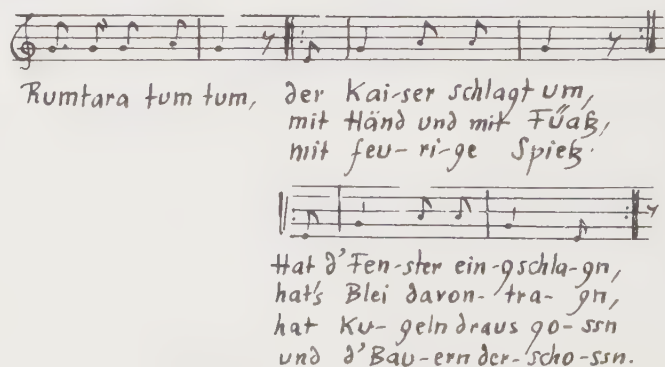 Rumtara tum tum, der Kai-ser schlagt um,
mit Händ und mit Füaß,
mit feu-ri-ge Spieß.
Hat d'Fen-ster ein-gschla-gn,
hat's Blei davon-tra-gn,
hat Ku-geln draus go-ssn
und d'Bau-ern der-scho-ssn.